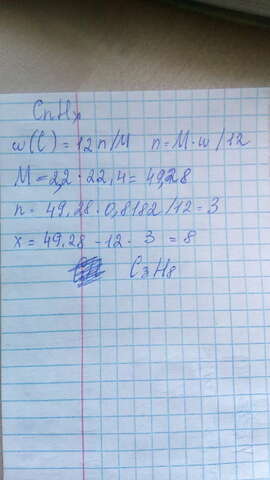 CnHx
w(C) = 12n/M n = M·w/12
M = 2,2·22,4 = 49,28
n = 49,28·0,8182/12 = 3
x = 49,28 - 12·3 = 8
C3H8